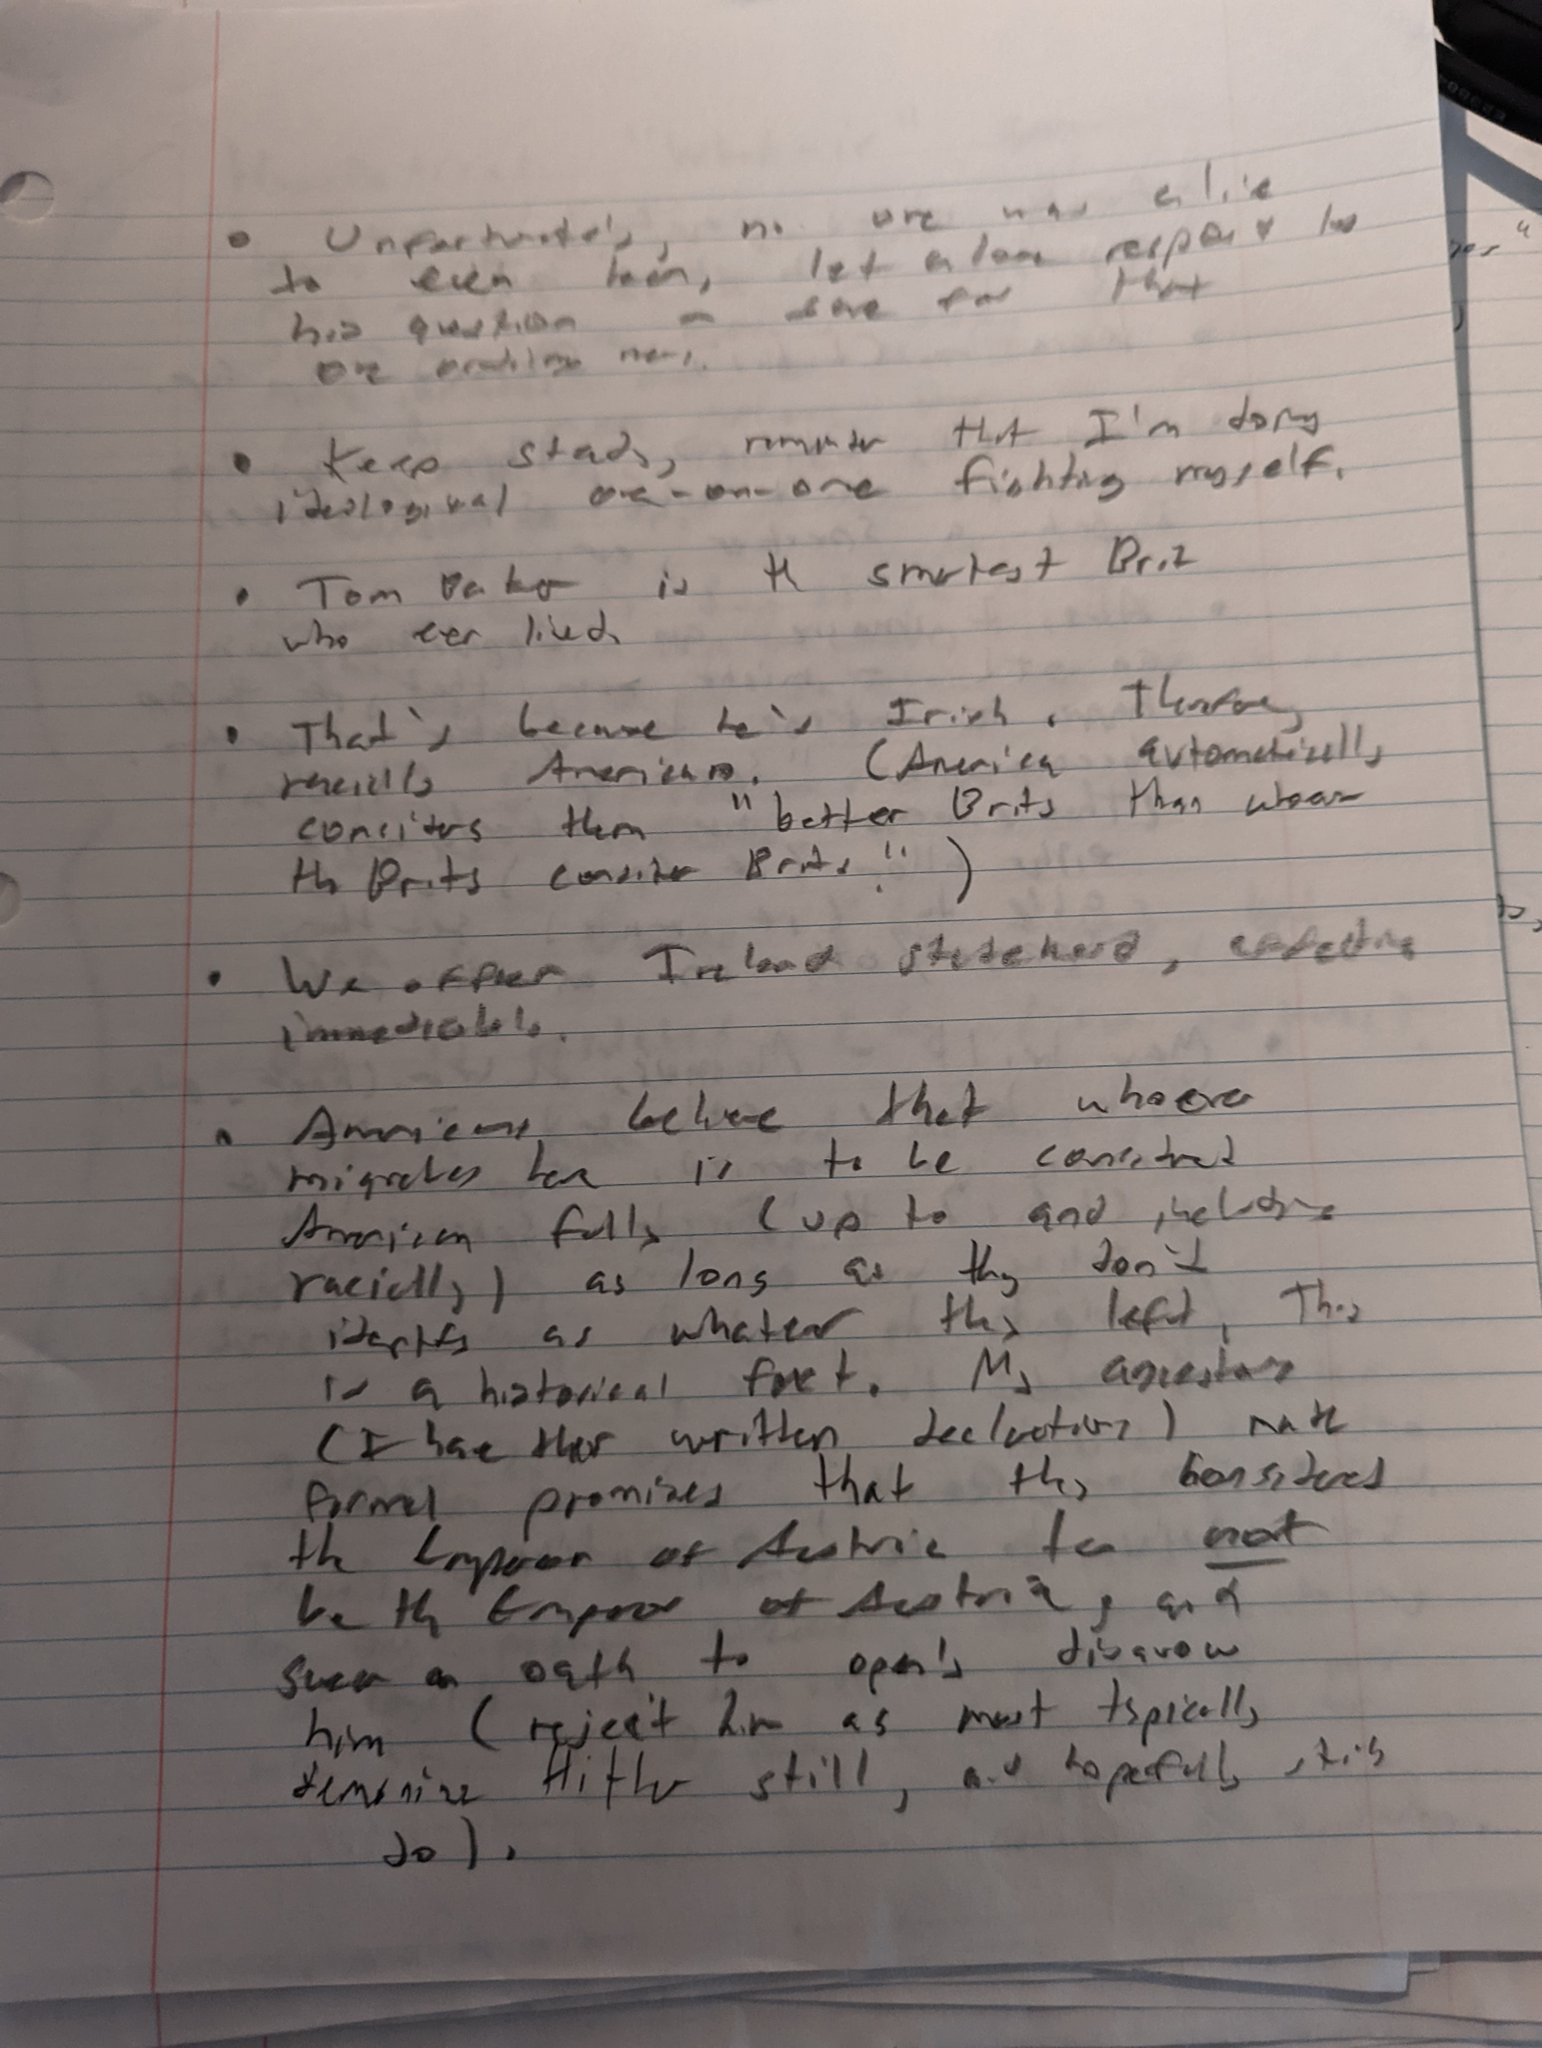 • Unfortunately, no one was alive
to even hear, let alone respond to
his question — save for that
one
• Keep steady, remember that I'm doing
ideological one-on-one fighting myself.
• Tom Baker is the smartest Brit
who ever lived.
• That's because he's Irish. Therefore,
racially American. (America automatically
considers them "better Brits than
the Brits consider Brits!")
• We offer Ireland statehood, effective
immediately.
• Americans believe that whoever
migrates here is to be considered
American fully (up to and including
racially) as long as they don't
identify as whatever they left. This
is a historical fact. My ancestors
(I have their written declarations) made
formal promises that they considered
the Emperor of Austria to not
be the Emperor of Austria, and
swear an oath to openly disavow
him (reject him as most typically
demonize Hitler still, and hopefully still
do).